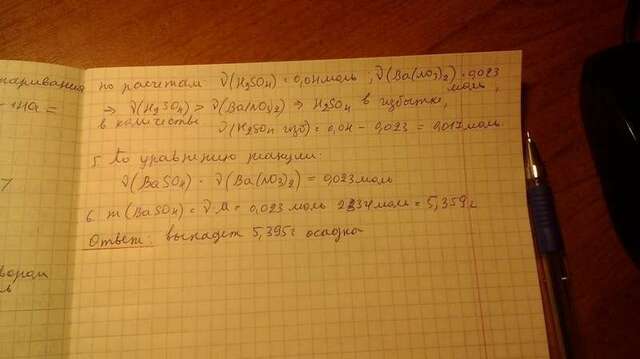 паривания
по расчетам ν(H₂SO₄) = 0,04 моль; ν(Ba(NO₃)₂) = 0,023 моль,
⇒ ν(H₂SO₄) > ν(Ba(NO₃)₂) ⇒ H₂SO₄ в избытке,
в количестве ν(H₂SO₄ изб) = 0,04 - 0,023 = 0,017 моль.
5. По уравнению реакции:
ν(BaSO₄) = ν(Ba(NO₃)₂) = 0,023 моль
6. m(BaSO₄) = ν·M = 0,023 моль · 233 г/моль = 5,359 г
Ответ: выпадет 5,395 г осадка